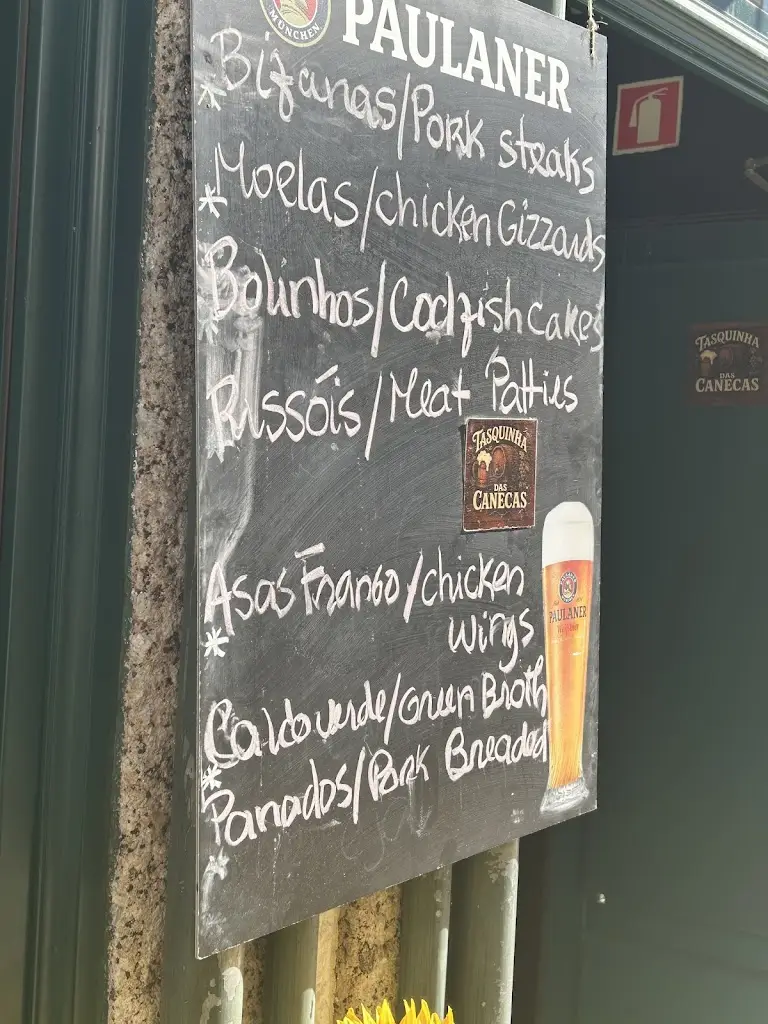 MÜNCHEN
PAULANER
* Bifanas/Pork steaks
* Moelas/chicken Gizzards
* Bolinhos/Codfish cakes
* Rissóis/Meat Patties
TASQUINHA
DAS
CANECAS
Asas Frango/chicken
* wings
Caldo verde/Green Broth
* Panados/Pork Breaded
*
PAULANER
TASQUINHA
DAS
CANECAS